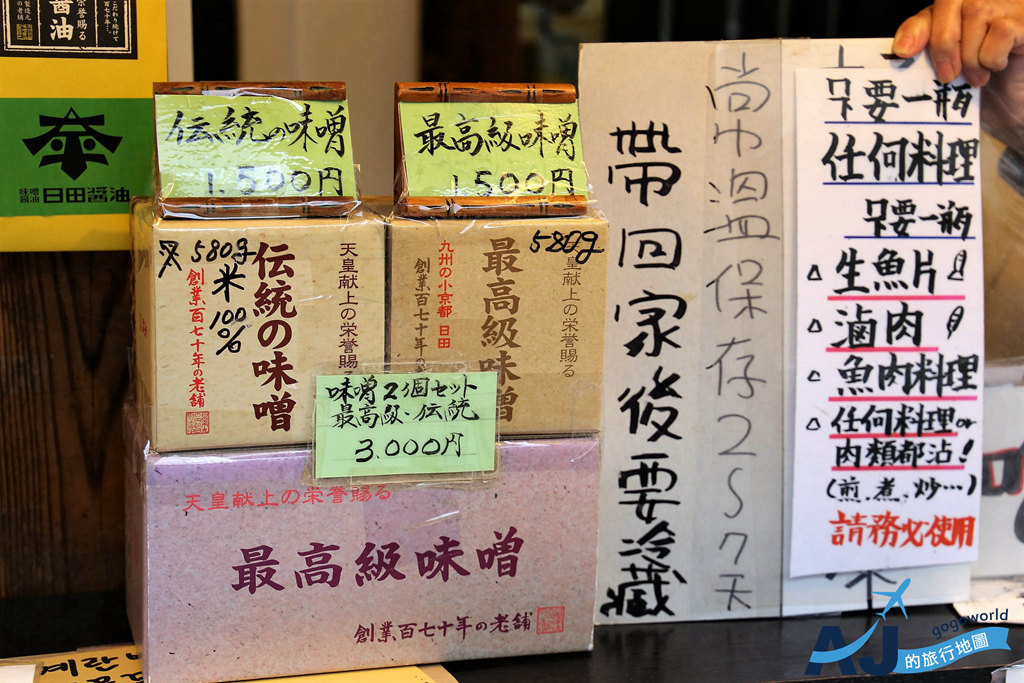 こだわり続けて
百七十年…
醤油
栄誉賜る
味噌
醤油
日田醤油
伝統の味噌
1.500円
最高級味噌
1500円
580g
米
100%
天皇献上の栄誉賜る
伝統の味噌
創業百七十年の老舗
580g
天皇献上の栄誉賜る
最高級味噌
九州の小京都 日田
創業百七十年の老舗
味噌2個セット
最高級・伝統
3.000円
天皇献上の栄誉賜る
最高級味噌
創業百七十年の老舗
帶回家後要冷藏
常溫保存2S7天
只要一瓶
任何料理
只要一瓶
△生魚片
△滷肉
△魚肉料理
△任何料理or
肉類都沾!
(煎.煮.炒…)
請務必使用
味
계란
AJ的旅行地圖
gogoworld